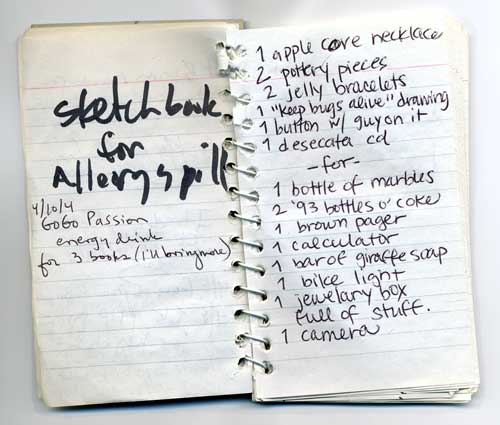 sketchbook
for
Allergy pill
4/10/4
GoGo Passion
energy drink
for 3 books (I'll bring more)
1 apple core necklace
2 pottery pieces
2 jelly bracelets
1 "keep bugs alive" drawing
1 button w/ guy on it
1 desecata cd
-for-
1 bottle of marbles
2 '93 bottles o' coke
1 brown pager
1 calculator
1 bar of giraffe soap
1 bike light
1 jewelary box
full of stuff.
1 camera